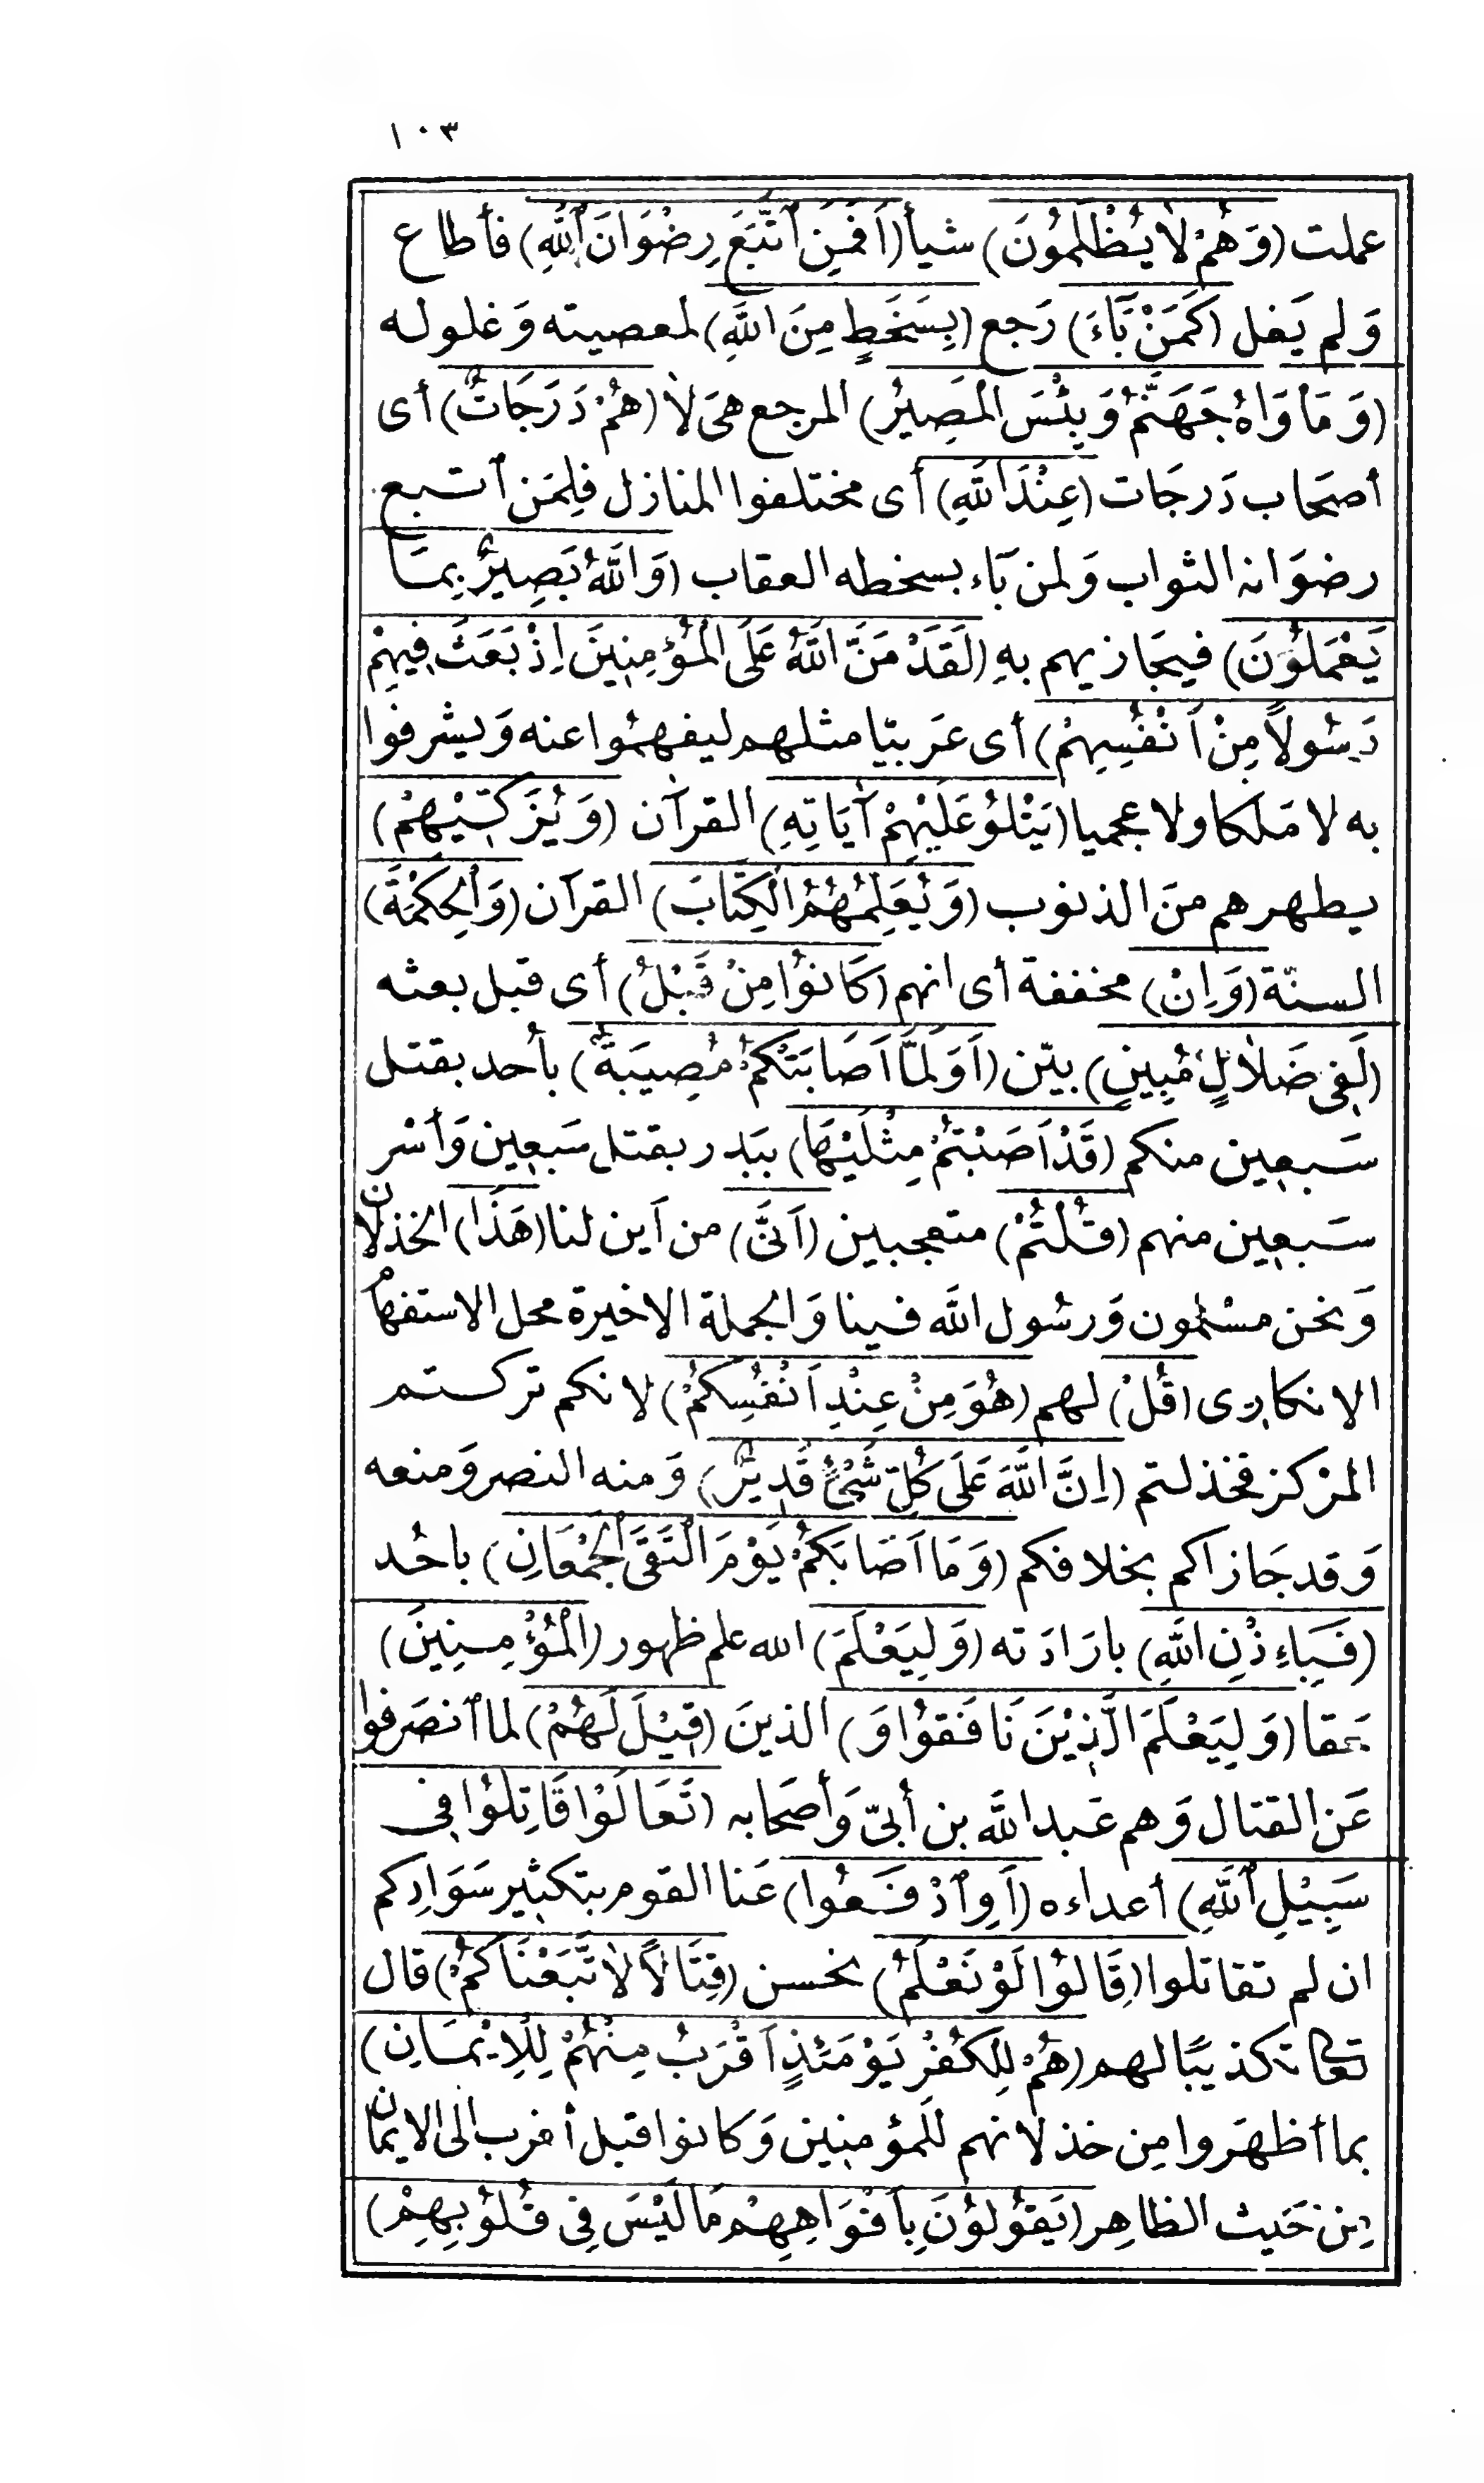 ١٠٣
عملت (وَهُمْ لَا يُظْلَمُونَ) شيأ (اَفَمَنِ ٱتَّبَعَ رِضْوَانَ ٱللّٰهِ) فأطاع
وَلم يَغل (كَمَنْ بَآءَ) رَجع (بِسَخَطٍ مِنَ اللّٰهِ) لمعصيته وَغلوله
(وَمَأْوَاهُ جَهَنَّمُ وَبِئْسَ الْمَصِيرُ) المرجع هىَ لَا (هُمْ دَرَجَاتٌ) أى
أصحَاب دَرجَات (عِنْدَ اللّٰهِ) أى مختلفوا المنازل فلِمَن ٱتبع
رضوَانه الثواب وَلمن بَآء بسخطه العقاب (وَاللّٰهُ بَصِيرٌ بِمَا
يَعْمَلُوْنَ) فيجَازيهم بهِ (لَقَدْ مَنَّ اللّٰهُ عَلَى الْمُؤْمِنِينَ اِذْ بَعَثَ فِيهِمْ
رَسُولاً مِنْ اَنْفُسِهِمْ) أى عَربيّا مثلهم ليفهمُوا عنه وَيشرفوا
به لا مَلكا ولا عجميا (يَتْلُوْ عَلَيْهِمْ آيَاتِهِ) القرآن (وَيُزَكِّيْهِمْ)
يطهرهم منَ الذنوب (وَيُعَلِّمُهُمُ الْكِتَابَ) القرآن (وَالْحِكْمَةَ)
السنّة (وَاِنْ) مخففة أى انهم (كَانُوْا مِنْ قَبْلُ) أى قبل بعثه
(لَفِى ضَلَالٍ مُبِينٍ) بيّن (اَوَلَمَّا اَصَابَتْكُمْ مُصِيبَةٌ) بأحد بقتل
سَبعين منكم (قَدْ اَصَبْتُمْ مِثْلَيْهَا) ببَدر بقتل سَبعين وَأسْر
سَبعين منهم (قُلْتُمْ) متعجبين (اَنَّى) من اَين لنا (هَذَا) الخذلان
وَنحن مسْلمون وَرسُول اللّٰه فينا وَالجملة الاخيرة محل الاستفهام
الانكارى (قُلْ) لهم (هُوَ مِنْ عِنْدِ اَنْفُسِكُمْ) لانكم تركتم
المرْكز فخذلتم (اِنَّ اللّٰهَ عَلَى كُلِّ شَىْءٍ قَدِيرٌ) وَمنه النصر وَمنعه
وَقد جَازاكم بخلافكم (وَمَا اَصَابَكُمْ يَوْمَ الْتَقَى الْجَمْعَانِ) باحُد
(فَبِاِذْنِ اللّٰهِ) بارَادَته (وَلِيَعْلَمَ) الله علم ظهور (الْمُؤْمِنِينَ)
حَقا (وَلِيَعْلَمَ الَّذِيْنَ نَافَقُوْا وَ) الذينَ (قِيْلَ لَهُمْ) لما ٱنصَرفوا
عَن القتال وَهم عَبد اللّٰه بن أُبىّ وَأصحَابه (تَعَالَوْا قَاتِلُوْا فِى
سَبِيْلِ ٱللّٰهِ) أعداءه (اَوِ ٱدْفَعُوا) عَنا القوم بتكثير سَوَادِكم
ان لم تقاتلوا (قَالُوْا لَوْ نَعْلَمُ) نحسن (قِتَالاً لَاتَّبَعْنَاكُمْ) قال
تعالى تكذيبًا لهم (هُمْ لِلْكُفْرِ يَوْمَئِذٍ اَقْرَبُ مِنْهُمْ لِلْاِيْمَانِ)
بما أظهَروا مِن خذلانهم للمؤمنين وَكانوا قبل أقرب الى الايمان
مِن حَيث الظاهِر (يَقُوْلُوْنَ بِاَفْوَاهِهِمْ مَا لَيْسَ فِى قُلُوْبِهِمْ)